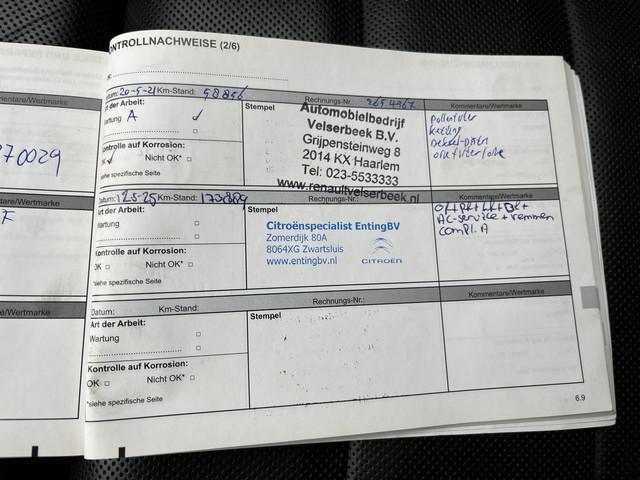 KONTROLLNACHWEISE (2/6)
Datum: 20-5-21 Km-Stand: 58856 Rechnungs-Nr.: Kommentare/Wertmarke
Art der Arbeit:
Wartung A
Stempel
Automobielbedrijf
Velserbeek B.V.
Grijpensteinweg 8
2014 KX Haarlem
Tel: 023-5533333
www.renaultvelserbeek.nl
pollenfilter
ketting
oliefilter/olie
Kontrolle auf Korrosion:
OK Nicht OK*
*siehe spezifische Seite
70029
Datum: Km-Stand: Rechnungs-Nr.: Kommentare/Wertmarke
Art der Arbeit:
Wartung
Stempel
Citroënspecialist EntingBV
Zomerdijk 80A
8064XG Zwartsluis
www.entingbv.nl
CITROËN
AC-service + remmen
compl. A
Kontrolle auf Korrosion:
OK Nicht OK*
*siehe spezifische Seite
F
Datum: Km-Stand: Rechnungs-Nr.: Kommentare/Wertmarke
Art der Arbeit:
Wartung
Stempel
Kontrolle auf Korrosion:
OK Nicht OK*
*siehe spezifische Seite
6.9